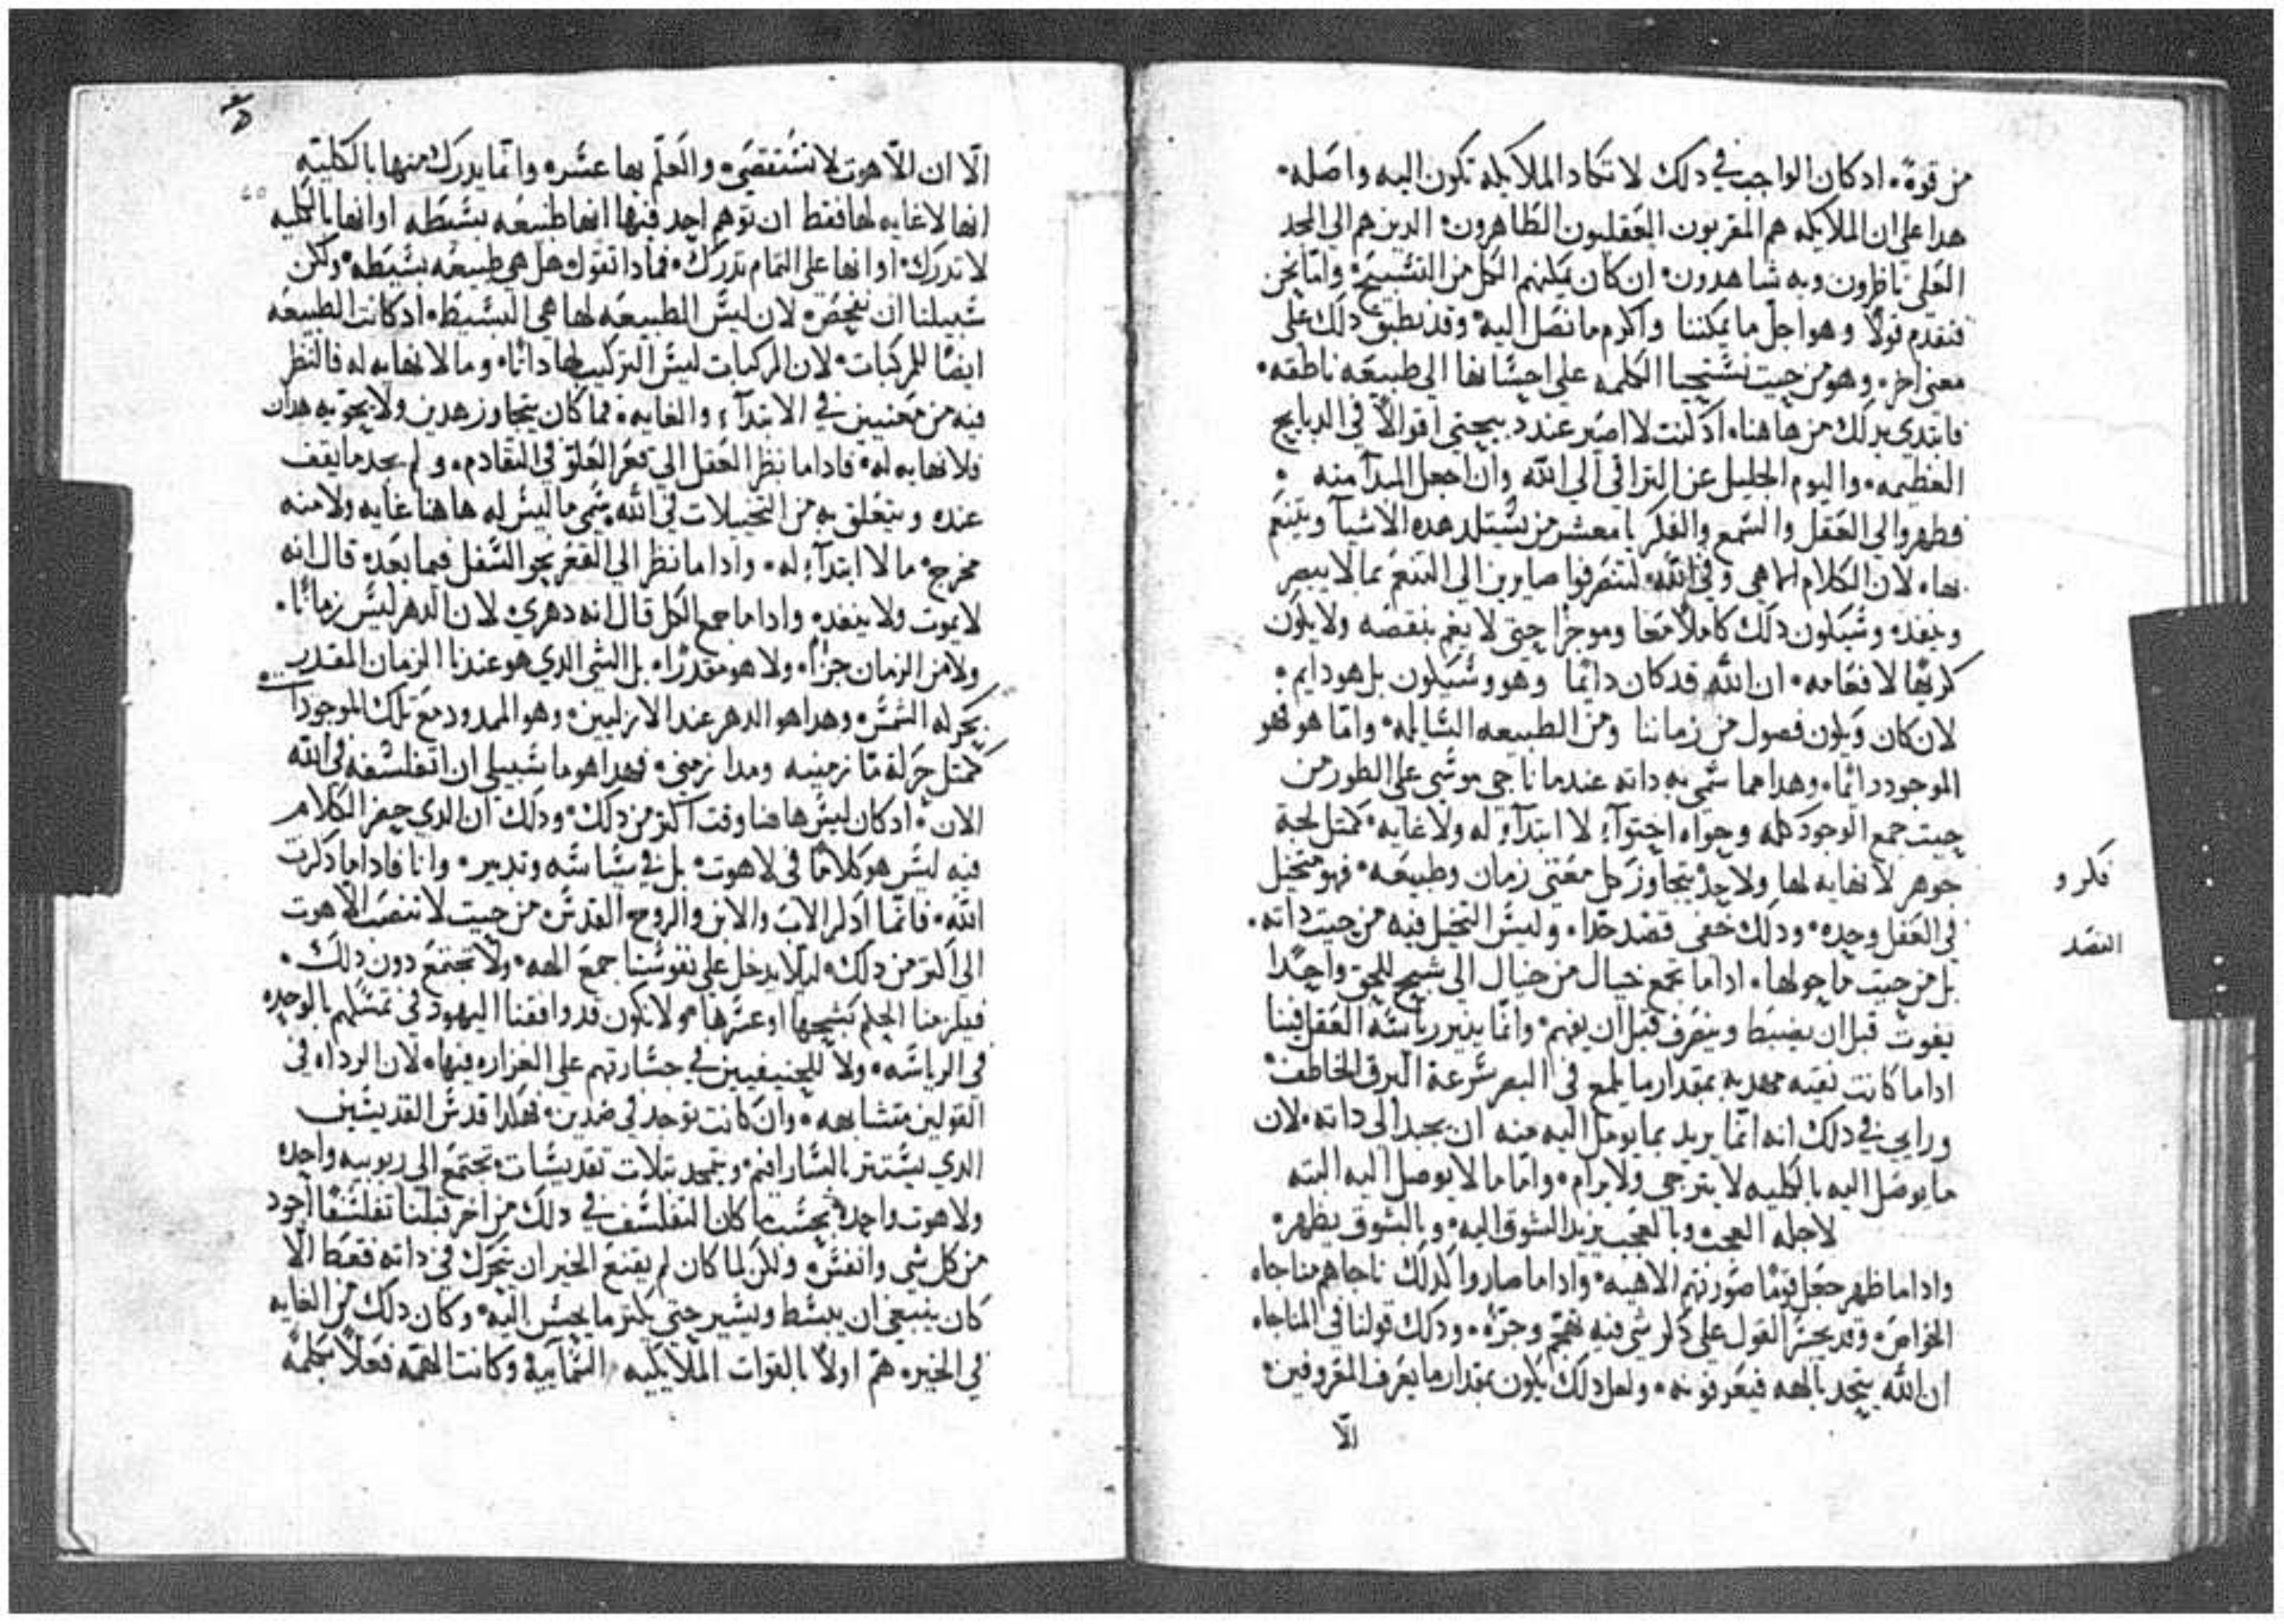 من قوة. ادكان الواجب في دلك لا تكاد الملايكه تكون اليه واصله.
هدا علي ان الملايكه هم المقربون العقليون الطاهرون. الدين هم الي المجد
العلي ناظرون وبه شاهدون. ان كان يمكنهم الكل من التسبيح. واما نحن
فنقدم قولا وهو اجل ما يمكننا واكرم ما نصل اليه. وقد نطبق دلك علي
معني اخر. وهو من حيت نستحيا الكلمه علي احسانها الي طبيعه ناطقه.
فابتدي بدلك من هاهنا. اد كنت لا اصبر عند دبيحتي اقوالا في الدبايح
العظيمه. واليوم الجليل عن التراقي الي الله وان اجعل المبدآ منه
فطهروا لي العقل والسمع والفكر يا معشر من يستلد هده الاشيآ ويتنعم
بها. لان الكلام الما هي وفي الله. لتنصرفوا صايرين الي التنعم بما لا يبصر
وينفد. وسيكون دلك كاملا معا وموجزا حتي لا يغم بنقصه ولا يكون
كريها لافعامه. ان الله قد كان دايما وهو وسيكون بل هو دايم.
لان كان ويكون فصول من زماننا ومن الطبيعه السايله. واما هو فهو
الموجود دائما. وهدا مما سمي به داته عندما ناجي موسي علي الطور من
حيت جمع الوجود كله وحواه احتوآء لا ابتدآء له ولا غايه. كمتل لجة
جوهر لا نهايه لها ولا حد يتجاوز كل معني زمان وطبيعه. فهو متخيل
في العقل وحده. ودلك خفي قصد جدا. وليس التخيل فيه من حيت داته.
بل من حيت ما حولها. اداما تجمع خيال من خيال الي شبح للحق واحدا
يفوت قبل ان يضبط وينصرف قبل ان يفهم. وانما ينير رياسه العقل فينا
اداما كانت نقيه مهدبه بمقدار ما يلمع في البصر سرعة البرق الخاطف.
ورايي في دلك انه انما يريد بما يوصل اليه منه ان يجبد الي داته. لان
ما يوصل اليه بالكليه لا يترجي ولا يرام. واما ما لا يوصل اليه البته
لاجله العجب. وبالعجب يزيد الشوق اليه. وبالشوق يطهر.
واداما طهر جعل قوما صورتهم الاهيه. واداما صاروا كدلك ناجاهم مناجاه
الخواص. وقد يجسر القول علي دكر شي فيه تهجم وجره. ودلك قولنا في المناجاه
ان الله يتحد بالهه فيعرفونه. ولعل دلك يكون بمقدار ما يعرف المعروفين.
الا
فكر و
القصد
الا ان اللاهوت لا تستقصي. والعلم بها عسر. وانما يدرك منها بالكليه
انها لا غايه لها فقط ان توهم احد فيها انها طبيعه بسيطه اوانها بالكليه
لا تدرك. اوانها علي التمام تدرك. فمادا تقول هل هي طبيعه بسيطه. ولكن
سبيلنا ان نفحص. لان ليس الطبيعه لها هي البسيط. اد كانت الطبيعه
ايضا للمركبات. لان المركبات ليس التركيب لها داتا. وما لا نهايه له فالنظر
فيه من معنيين في الابتدآء والغايه. فما كان يتجاوز هدين ولا يحويه هدان
فلا نهايه له. فاداما نظر العقل الي قعر العلو في التقادم. ولم يجد ما يقف
عنده ويتعلق به من التخيلات في الله سمي ما ليس له هاهنا غايه ولا منه
مخرج. ما لا ابتدآء له. واداما نظر الي القعر نحو السفل فيما بعد. قال انه
لا يموت ولا ينفد. واداما جمع الكل قال انه دهري. لان الدهر ليس زمانا.
ولا من الزمان جزا. ولا هو مقدرا. بل الشي الدي هو عندنا الزمان المقدر
بحركه الشمس. وهدا هو الدهر عند الازليين. وهو الممدود مع تلك الموجودا
كمتل حركة ما زمنيه ومدا زمني. فهدا هو ما سبيلي ان اتفلسفه في الله
الان. ادكان ليس هاهنا وقت اكتر من دلك. ودلك ان الدي حضر الكلام
فيه ليس هو كلاما في لاهوت. بل في سياسه وتدبير. وانا فاداما دكرت
الله. فانما ادكر الاب والابن والروح القدس. من حيت لا تنصب اللاهوت
الي اكتر من دلك. ليلا يدخل علي نفوسنا جمع الهه. ولا تجتمع دون دلك.
فيلزمنا الحكم بشحها او عسرها. ولا نكون قد وافقنا اليهود في تمسكهم بالوحده
في الرياسه. ولا للحنيفيين في جسارتهم علي الغزاره فيها. لان الرداه في
القولين متشابهه. وان كانت توجد في ضدين. فهكدا قدس القديسين
الدي يستتر بالسارافيم. ويتمجد بتلات تقديسات. تجتمع الي ربوبيه واحده
ولاهوت واحد. بحسب ما كان التفلسف في دلك من اخر قبلنا تفلسفا اجود
من كل شي وانفس. ولكن لما كان لم يقنع الخير ان يتحرك في داته فقط الا
كان ينبغي ان ينبسط ويسير حتي يكتر ما يحسن اليه. وكان دلك من الغايه
في الخير. هم اولا بالقوات الملايكيه السمآييه وكانت الهمه فعلا بكلمة